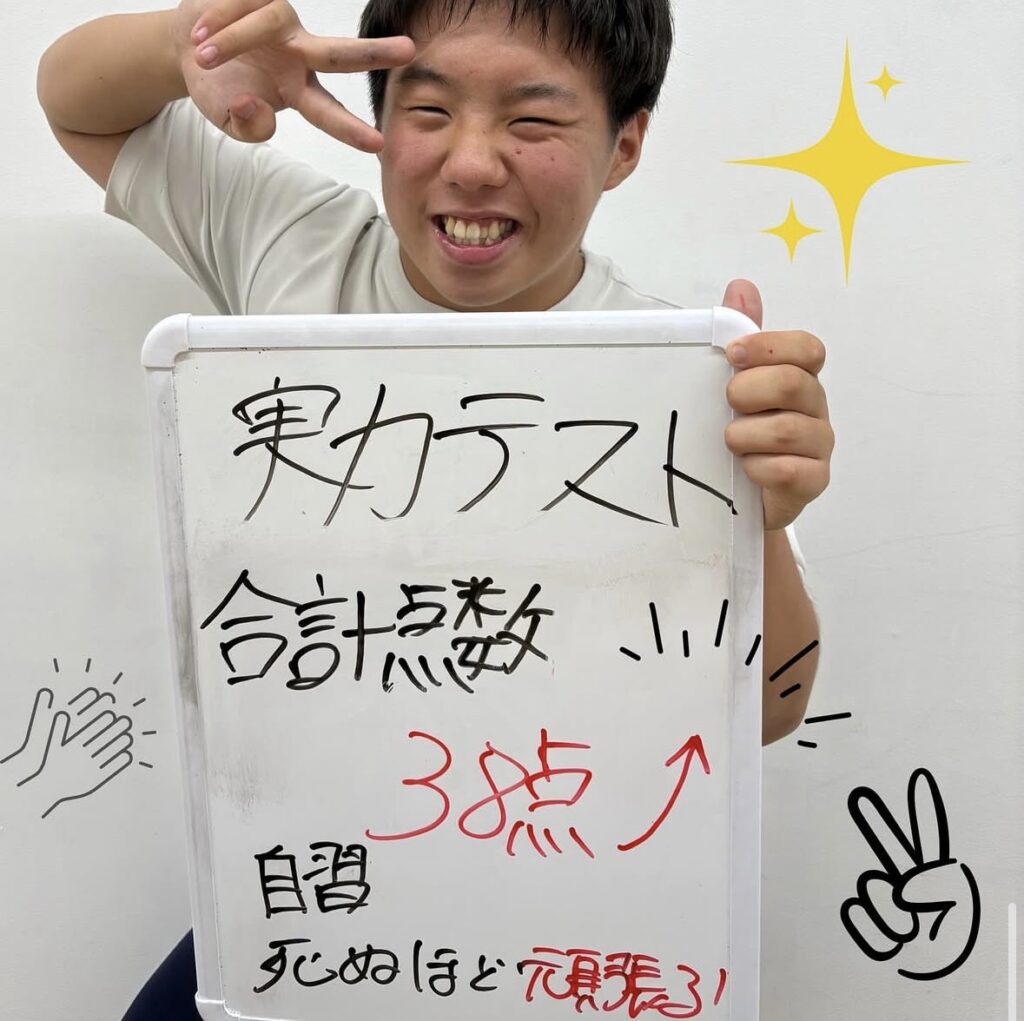 実力テスト
合計点数
38点
自習
死ぬほど頑張る!